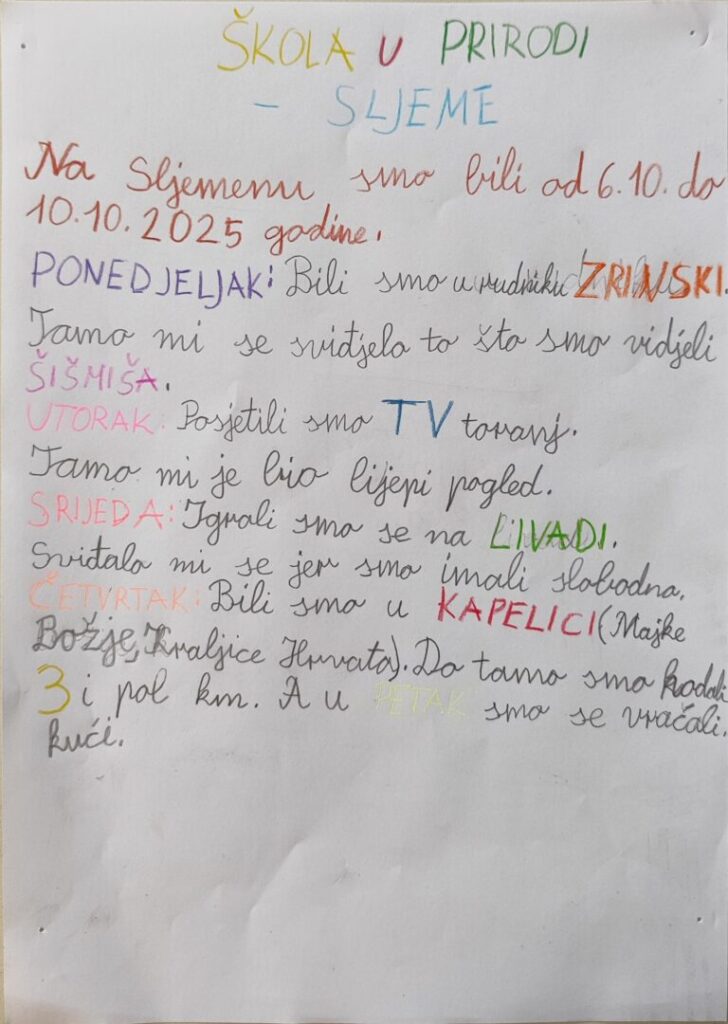 ŠKOLA U PRIRODI
- SLJEME
Na Sljemenu smo bili od 6.10. do
10.10.2025 godine.
PONEDJELJAK: Bili smo u rudniku ZRINSKI.
Tamo mi se sviđjelo to što smo vidjeli
ŠIŠMIŠA.
UTORAK: Posjetili smo TV toranj.
Tamo mi je bio lijepi pogled.
SRIJEDA: Igrali smo se na LIVADI.
Sviđalo mi se jer smo imali slobodno.
ČETVRTAK: Bili smo u KAPELICI (Majke
Božje, Kraljice Hrvata). Do tamo smo hodali
3 i pol km. A u PETAK smo se vračali.
kući.